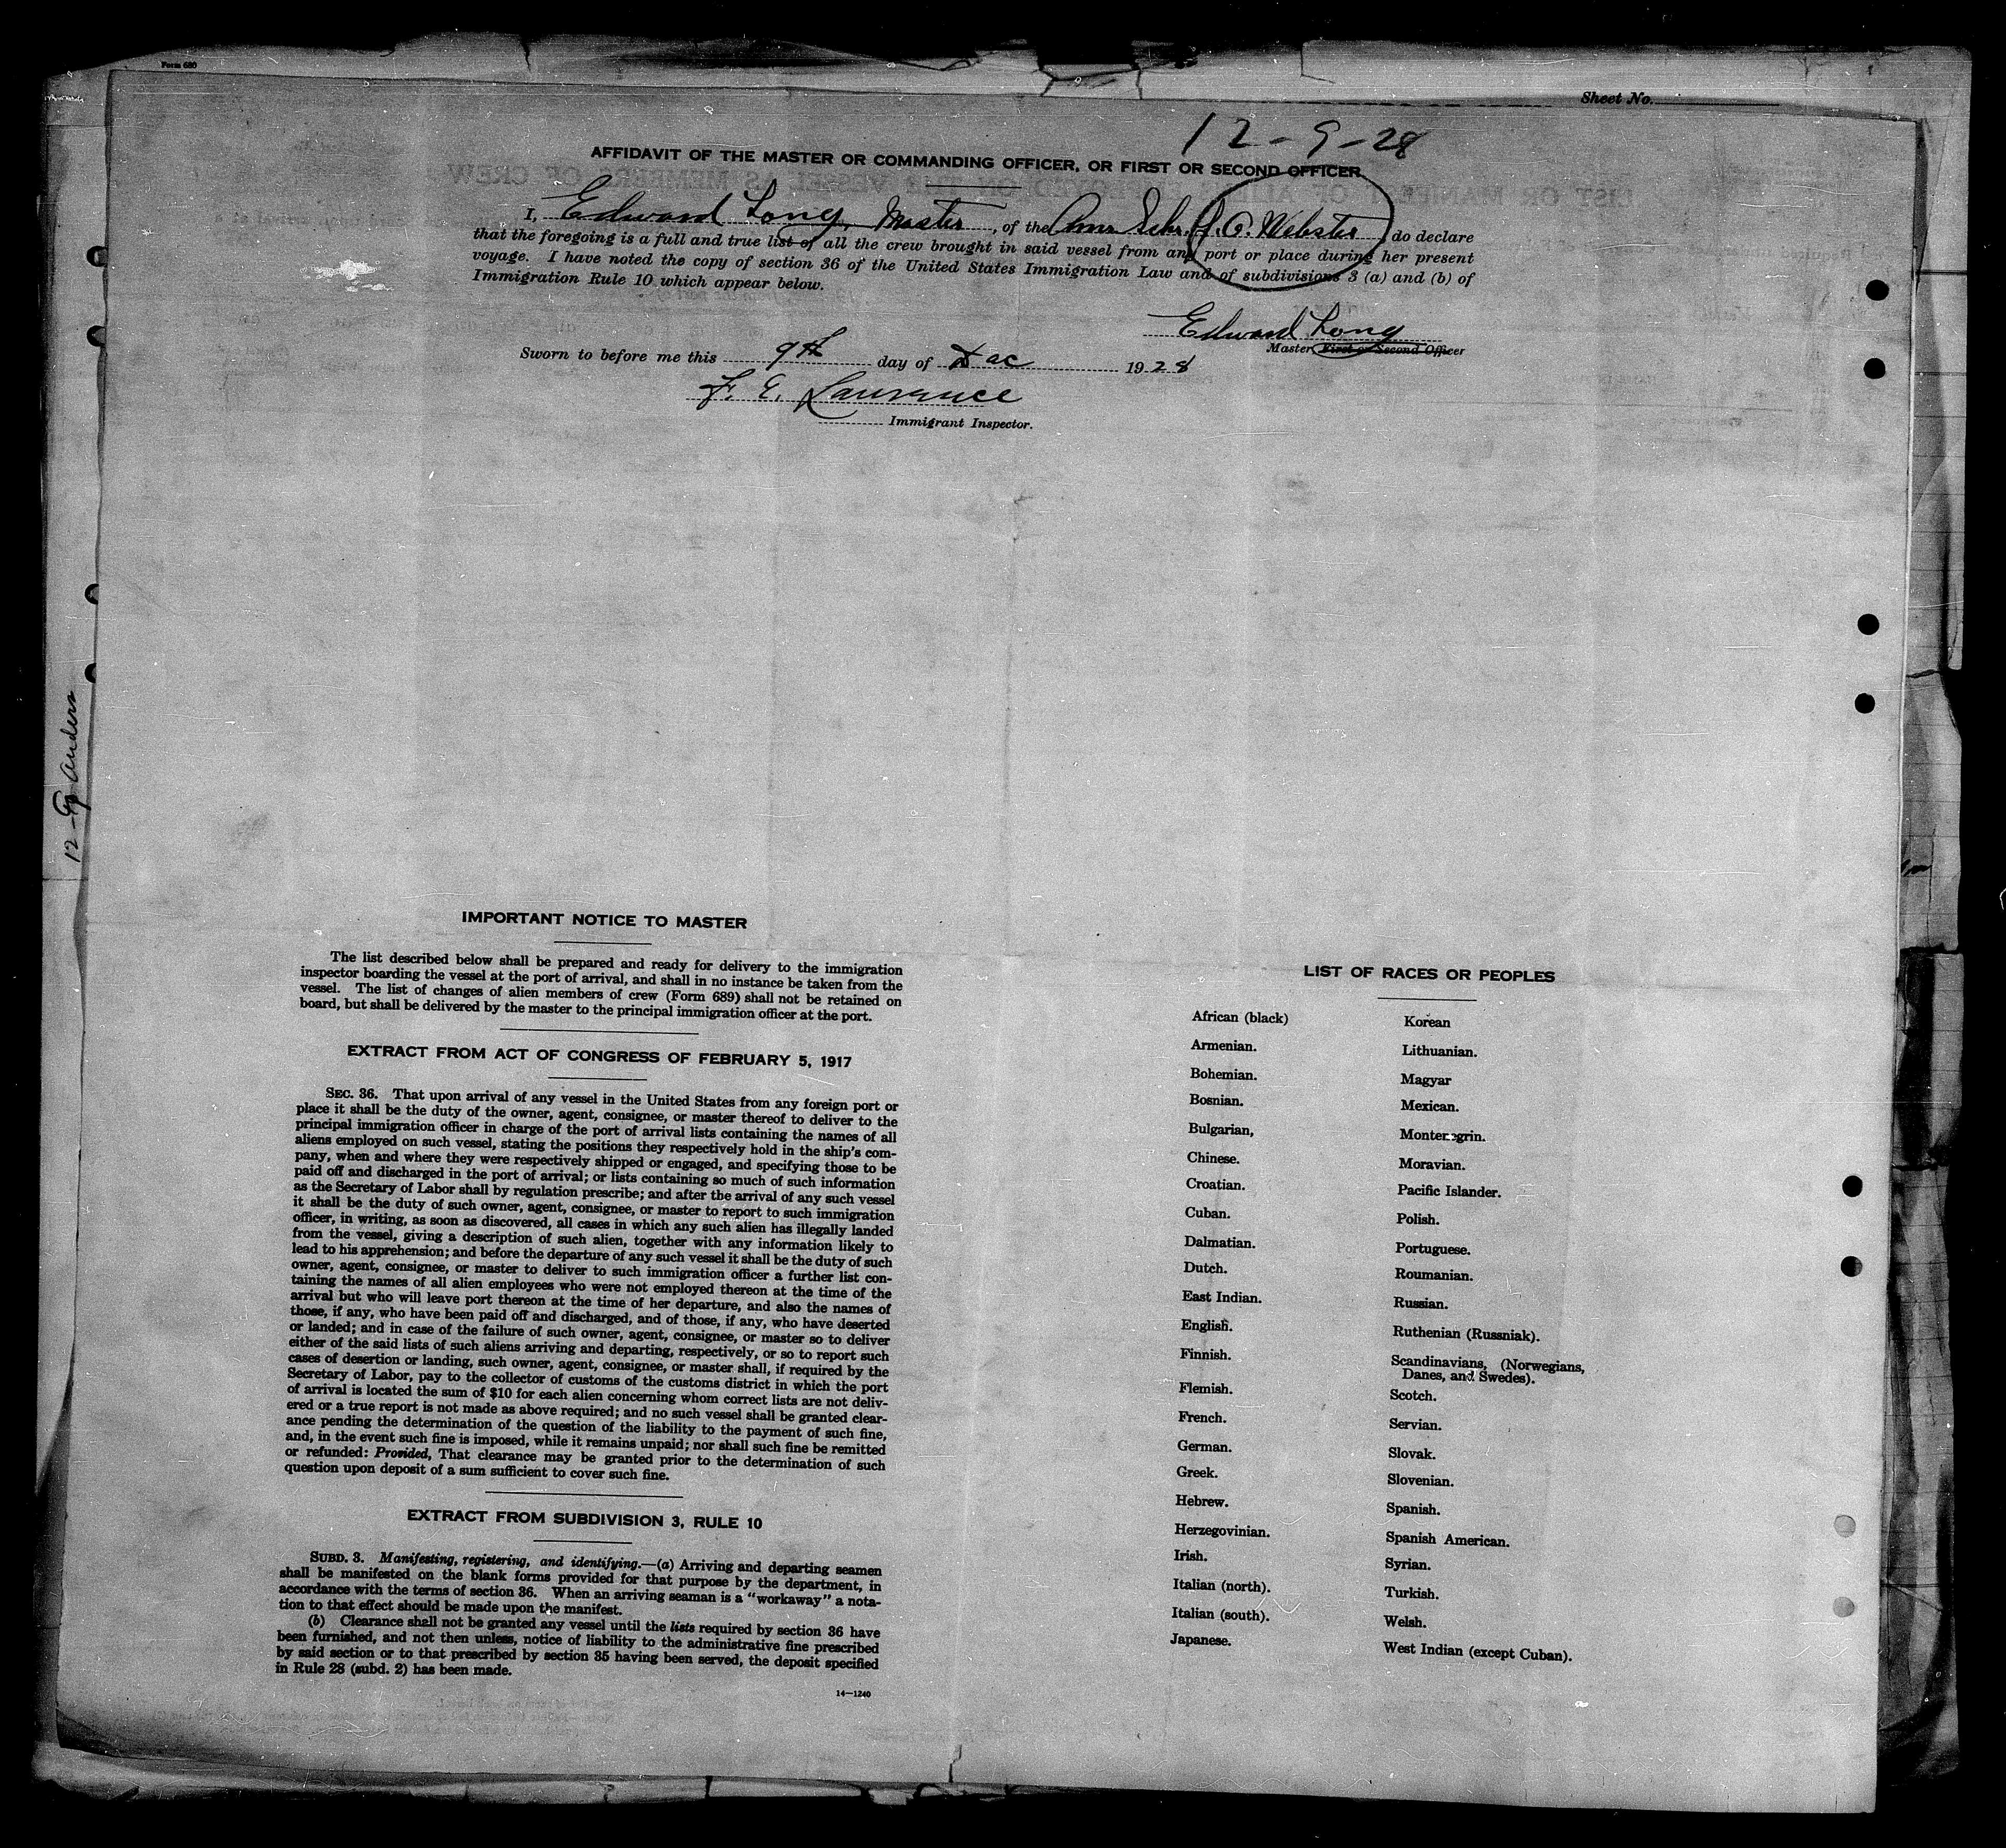 Form 680
Sheet No.
12-9-28
AFFIDAVIT OF THE MASTER OR COMMANDING OFFICER, OR FIRST OR SECOND OFFICER
I, Edward Long, Master, of the Amr Schr. O. Webster, do declare
that the foregoing is a full and true list of all the crew brought in said vessel from any port or place during her present
voyage. I have noted the copy of section 36 of the United States Immigration Law and of subdivisions 3 (a) and (b) of
Immigration Rule 10 which appear below.
Edward Long
Master First or Second Officer
Sworn to before me this 9th day of Dec 1928
F. E. Lawrance
Immigrant Inspector.
IMPORTANT NOTICE TO MASTER
The list described below shall be prepared and ready for delivery to the immigration
inspector boarding the vessel at the port of arrival, and shall in no instance be taken from the
vessel. The list of changes of alien members of crew (Form 689) shall not be retained on
board, but shall be delivered by the master to the principal immigration officer at the port.
EXTRACT FROM ACT OF CONGRESS OF FEBRUARY 5, 1917
SEC. 36. That upon arrival of any vessel in the United States from any foreign port or
place it shall be the duty of the owner, agent, consignee, or master thereof to deliver to the
principal immigration officer in charge of the port of arrival lists containing the names of all
aliens employed on such vessel, stating the positions they respectively hold in the ship's com-
pany, when and where they were respectively shipped or engaged, and specifying those to be
paid off and discharged in the port of arrival; or lists containing so much of such information
as the Secretary of Labor shall by regulation prescribe; and after the arrival of any such vessel
it shall be the duty of such owner, agent, consignee, or master to report to such immigration
officer, in writing, as soon as discovered, all cases in which any such alien has illegally landed
from the vessel, giving a description of such alien, together with any information likely to
lead to his apprehension; and before the departure of any such vessel it shall be the duty of such
owner, agent, consignee, or master to deliver to such immigration officer a further list con-
taining the names of all alien employees who were not employed thereon at the time of the
arrival but who will leave port thereon at the time of her departure, and also the names of
those, if any, who have been paid off and discharged, and of those, if any, who have deserted
or landed; and in case of the failure of such owner, agent, consignee, or master so to deliver
either of the said lists of such aliens arriving and departing, respectively, or so to report such
cases of desertion or landing, such owner, agent, consignee, or master shall, if required by the
Secretary of Labor, pay to the collector of customs of the customs district in which the port
of arrival is located the sum of $10 for each alien concerning whom correct lists are not deliv-
ered or a true report is not made as above required; and no such vessel shall be granted clear-
ance pending the determination of the question of the liability to the payment of such fine,
and, in the event such fine is imposed, while it remains unpaid; nor shall such fine be remitted
or refunded: Provided, That clearance may be granted prior to the determination of such
question upon deposit of a sum sufficient to cover such fine.
EXTRACT FROM SUBDIVISION 3, RULE 10
SUBD. 3. Manifesting, registering, and identifying.—(a) Arriving and departing seamen
shall be manifested on the blank forms provided for that purpose by the department, in
accordance with the terms of section 36. When an arriving seaman is a "workaway" a nota-
tion to that effect should be made upon the manifest.
(b) Clearance shall not be granted any vessel until the lists required by section 36 have
been furnished, and not then unless, notice of liability to the administrative fine prescribed
by said section or to that prescribed by section 35 having been served, the deposit specified
in Rule 28 (subd. 2) has been made.
14—1240
LIST OF RACES OR PEOPLES
African (black)
Armenian.
Bohemian.
Bosnian.
Bulgarian,
Chinese.
Croatian.
Cuban.
Dalmatian.
Dutch.
East Indian.
English.
Finnish.
Flemish.
French.
German.
Greek.
Hebrew.
Herzegovinian.
Irish.
Italian (north).
Italian (south).
Japanese.
Korean
Lithuanian.
Magyar
Mexican.
Montenegrin.
Moravian.
Pacific Islander.
Polish.
Portuguese.
Roumanian.
Russian.
Ruthenian (Russniak).
Scandinavians, (Norwegians,
Danes, and Swedes).
Scotch.
Servian.
Slovak.
Slovenian.
Spanish.
Spanish American.
Syrian.
Turkish.
Welsh.
West Indian (except Cuban).